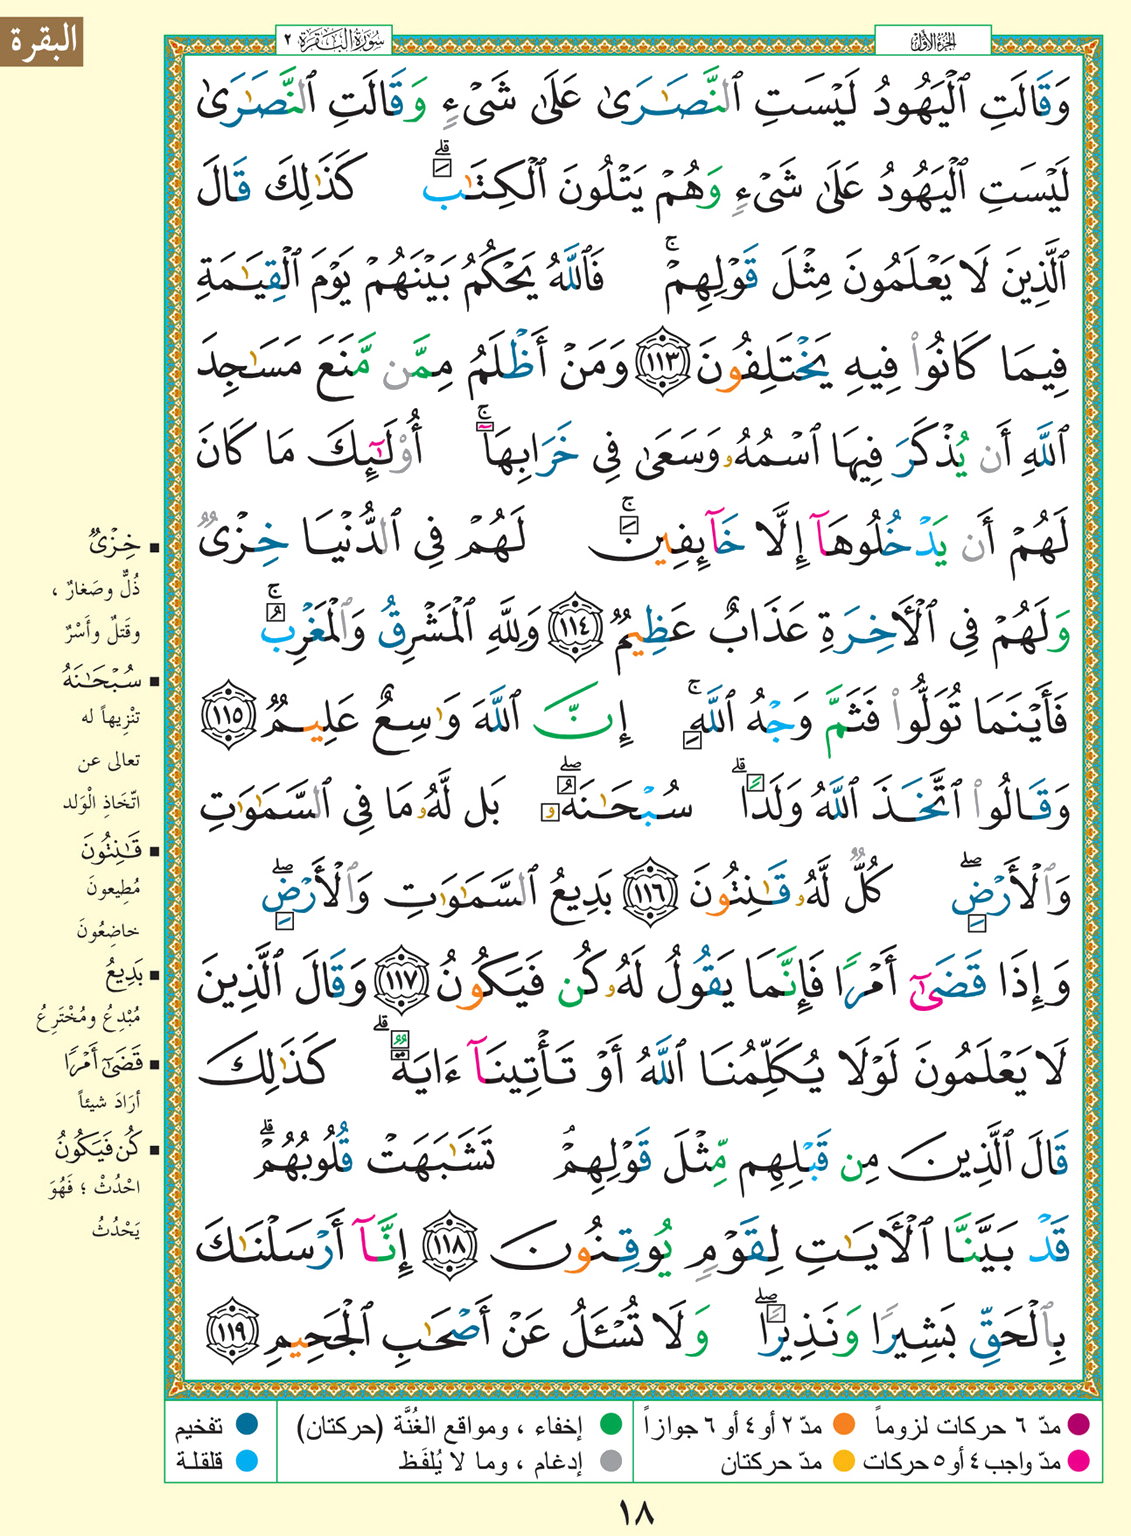 البقرة
سُورَةُ البَقَرَة ٢
الجزء الأول
وَقَالَتِ ٱلْيَهُودُ لَيْسَتِ ٱلنَّصَٰرَىٰ عَلَىٰ شَىْءٍ وَقَالَتِ ٱلنَّصَٰرَىٰ
لَيْسَتِ ٱلْيَهُودُ عَلَىٰ شَىْءٍ وَهُمْ يَتْلُونَ ٱلْكِتَٰبَ ۗ كَذَٰلِكَ قَالَ
ٱلَّذِينَ لَا يَعْلَمُونَ مِثْلَ قَوْلِهِمْ ۚ فَٱللَّهُ يَحْكُمُ بَيْنَهُمْ يَوْمَ ٱلْقِيَٰمَةِ
فِيمَا كَانُوا۟ فِيهِ يَخْتَلِفُونَ ١١٣ وَمَنْ أَظْلَمُ مِمَّن مَّنَعَ مَسَٰجِدَ
ٱللَّهِ أَن يُذْكَرَ فِيهَا ٱسْمُهُۥ وَسَعَىٰ فِى خَرَابِهَآ ۚ أُو۟لَٰٓئِكَ مَا كَانَ
لَهُمْ أَن يَدْخُلُوهَآ إِلَّا خَآئِفِينَ ۚ لَهُمْ فِى ٱلدُّنْيَا خِزْىٌ
وَلَهُمْ فِى ٱلْأَخِرَةِ عَذَابٌ عَظِيمٌ ١١٤ وَلِلَّهِ ٱلْمَشْرِقُ وَٱلْمَغْرِبُ ۚ
فَأَيْنَمَا تُوَلُّوا۟ فَثَمَّ وَجْهُ ٱللَّهِ ۚ إِنَّ ٱللَّهَ وَٰسِعٌ عَلِيمٌ ١١٥
وَقَالُوا۟ ٱتَّخَذَ ٱللَّهُ وَلَدًا ۗ سُبْحَٰنَهُۥ ۖ بَل لَّهُۥ مَا فِى ٱلسَّمَٰوَٰتِ
وَٱلْأَرْضِ ۖ كُلٌّ لَّهُۥ قَٰنِتُونَ ١١٦ بَدِيعُ ٱلسَّمَٰوَٰتِ وَٱلْأَرْضِ ۖ
وَإِذَا قَضَىٰٓ أَمْرًا فَإِنَّمَا يَقُولُ لَهُۥ كُن فَيَكُونُ ١١٧ وَقَالَ ٱلَّذِينَ
لَا يَعْلَمُونَ لَوْلَا يُكَلِّمُنَا ٱللَّهُ أَوْ تَأْتِينَآ ءَايَةٌ ۗ كَذَٰلِكَ
قَالَ ٱلَّذِينَ مِن قَبْلِهِم مِّثْلَ قَوْلِهِمْ ۘ تَشَٰبَهَتْ قُلُوبُهُمْ ۗ
قَدْ بَيَّنَّا ٱلْأَيَٰتِ لِقَوْمٍ يُوقِنُونَ ١١٨ إِنَّآ أَرْسَلْنَٰكَ
بِٱلْحَقِّ بَشِيرًا وَنَذِيرًا ۖ وَلَا تُسْـَٔلُ عَنْ أَصْحَٰبِ ٱلْجَحِيمِ ١١٩
خِزْىٌ
ذُلٌّ وصَغارٌ ،
وقَتلٌ وأَسْرٌ
سُبْحَٰنَهُ
تنْزِيهاً له
تعالى عن
اتّخَاذِ الْوَلد
قَٰنِتُونَ
مُطِيعونَ
خاضِعُونَ
بَدِيعُ
مُبْدِعُ ومُخْتَرِعُ
قَضَىٰٓ أَمْرًا
أرَادَ شيئاً
كُن فَيَكُونُ
احْدُثْ ؛ فَهُوَ
يَحْدُثُ
مدّ ٦ حركات لزوماً
مدّ ٢ أو ٤ أو ٦ جوازاً
إخفاء ، ومواقع الغُنَّة (حركتان)
تفخيم
مدّ واجب ٤ أو ٥ حركات
مدّ حركتان
إدغام ، وما لا يُلفَظ
قلقلة
١٨